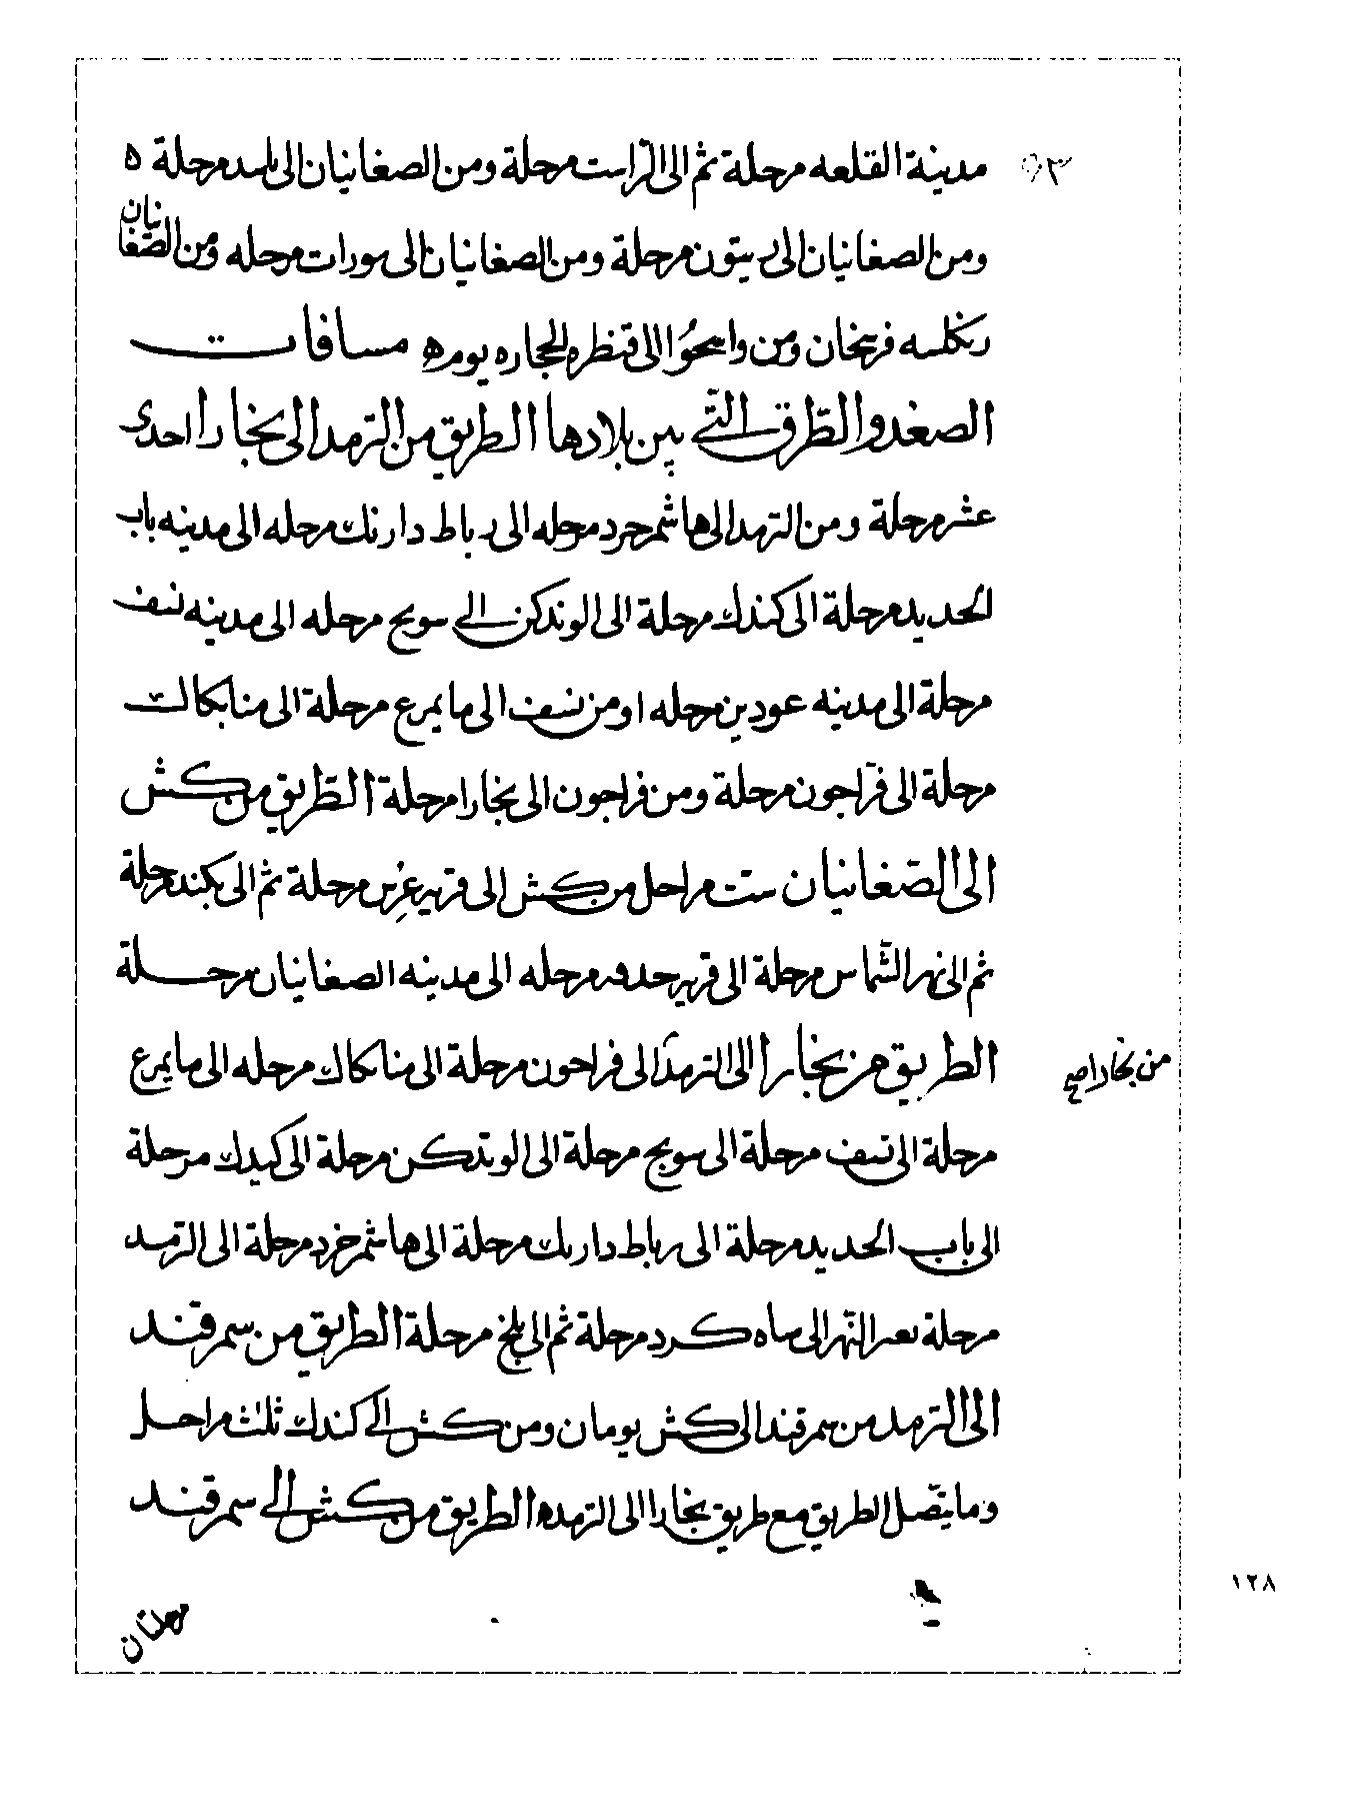 مدينة القلعه مرحلة ثم الى الراست مرحلة ومن الصغانيان الى باسد مرحلة ه
ومن الصغانيان الى ريتون مرحلة ومن الصغانيان الى بورات مرحله ومن الصغانيان
فرنجان ومن واسحو الى قنطره الحجاره يوم ه مسافات
الصغد والطرق التي بين بلادها الطريق من الترمد الى بخارا احدى
عشر مرحلة ومن الترمد الى هاشم جرد مرحله الى رباط دارنك مرحله الى مدينه باب
الحديد مرحلة الى كندك مرحلة الى الوندكن الى سوبح مرحله الى مدينه نسف
مرحلة الى مدينه عودين مرحله اومن نسف الى مايمرع مرحلة الى منابكالت
مرحلة الى فراجون مرحلة ومن فراجون الى بخارا مرحلة الطريق من كش
الى الصغانيان ست مراحل من كش الى قريه مرحلة ثم الى بكند مرحلة
ثم الى نهر الشماس مرحلة الى قريه مرحله الى مدينه الصغانيان مرحلة
الطريق من بخارا الى الترمد الى فراحون مرحلة الى مرحله الى مايمرع
من بخارا صح
مرحلة الى نسف مرحلة الى سوبج مرحلة الى الوندكن مرحلة الى كيدك مرحلة
الى باب الحديد مرحلة الى رباط دارىك مرحلة الى هاشم خرد مرحلة الى الترمد
مرحلة ىعبر النهر الى ساه كرد مرحلة ثم الى بلخ مرحلة الطريق من سمرقند
الى الترمد من سمرقند الى كش يومان ومن كش الى كندك ثلث مراحل
وما يتصل الطريق مع طريق بخارا الى الترمد ه الطريق من كش الى سمرقند
١٢٨